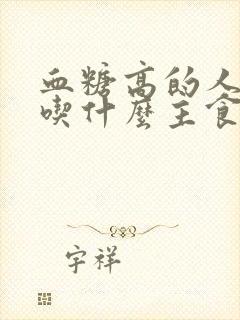 血糖高的人
喫什麼主食
宇祥